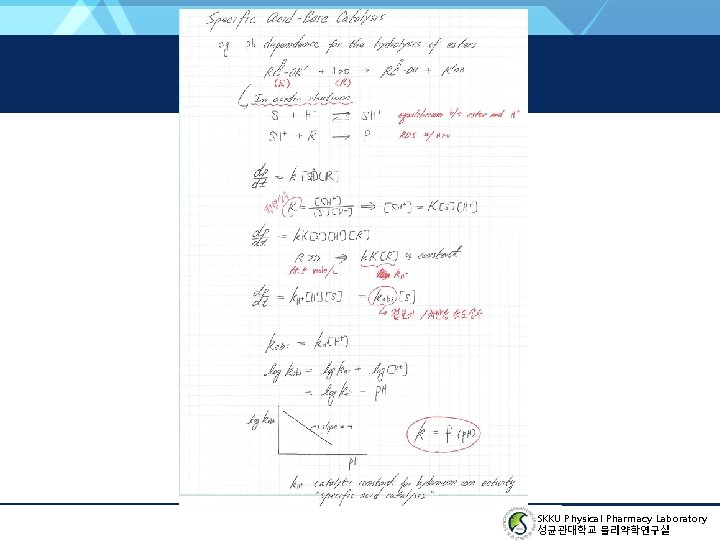 Specific Acid-Base Catalysis
eg pH dependence for the hydrolysis of esters
RC-OR' + H2O → RC-OH + R'OH
O O
(S) (R)
In acidic solutions
S + H+ ⇌ SH+ equilibrium b/w ester and H+
SH+ + R → P RDS w/ H2O
dp/dt = k[SH+][R]
K = [SH+]/[S][H+] ⇒ [SH+] = K[S][H+]
dp/dt = kK[S][H+][R]
R ⇒ kK[R] ≈ constant
mole/L kH+
dp/dt = kH+[H+][S] = kobs[S]
겉보기 / 속도상수
kobs = kH+[H+]
log kobs = log kH+ + log[H+]
= log kH+ - pH
log kobs
slope = -1
k = f(pH)
pH
kH+ catalytic constant for hydronium ion activity
"specific acid catalysis"
SKKU Physical Pharmacy Laboratory
성균관대학교 물리약학연구실